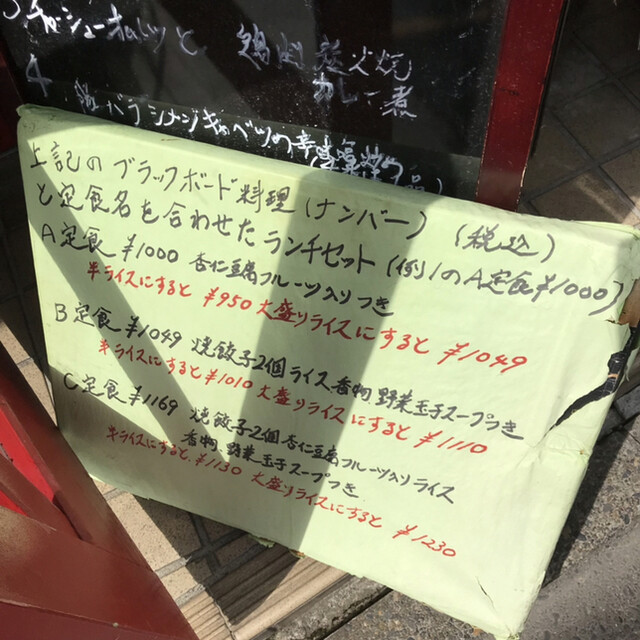 チャーシューオムレツと 鶏肉炭火焼
カレー煮
4 豚バラシメジキャベツの辛味
上記のブラックボード料理(ナンバー) (税込)
と定食名を合わせたランチセット (例)1のA定食¥1000)
A定食 ¥1000 杏仁豆腐フルーツ入りつき
半ライスにすると ¥950 大盛りライスにすると ¥1049
B定食 ¥1049 焼餃子2個 ライス 香物 野菜玉子スープつき
半ライスにすると ¥1010 大盛りライスにすると ¥1110
C定食 ¥1169 焼餃子2個 杏仁豆腐フルーツ入り ライス
香物 野菜玉子スープつき
半ライスにすると ¥1130 大盛りライスにすると ¥1230